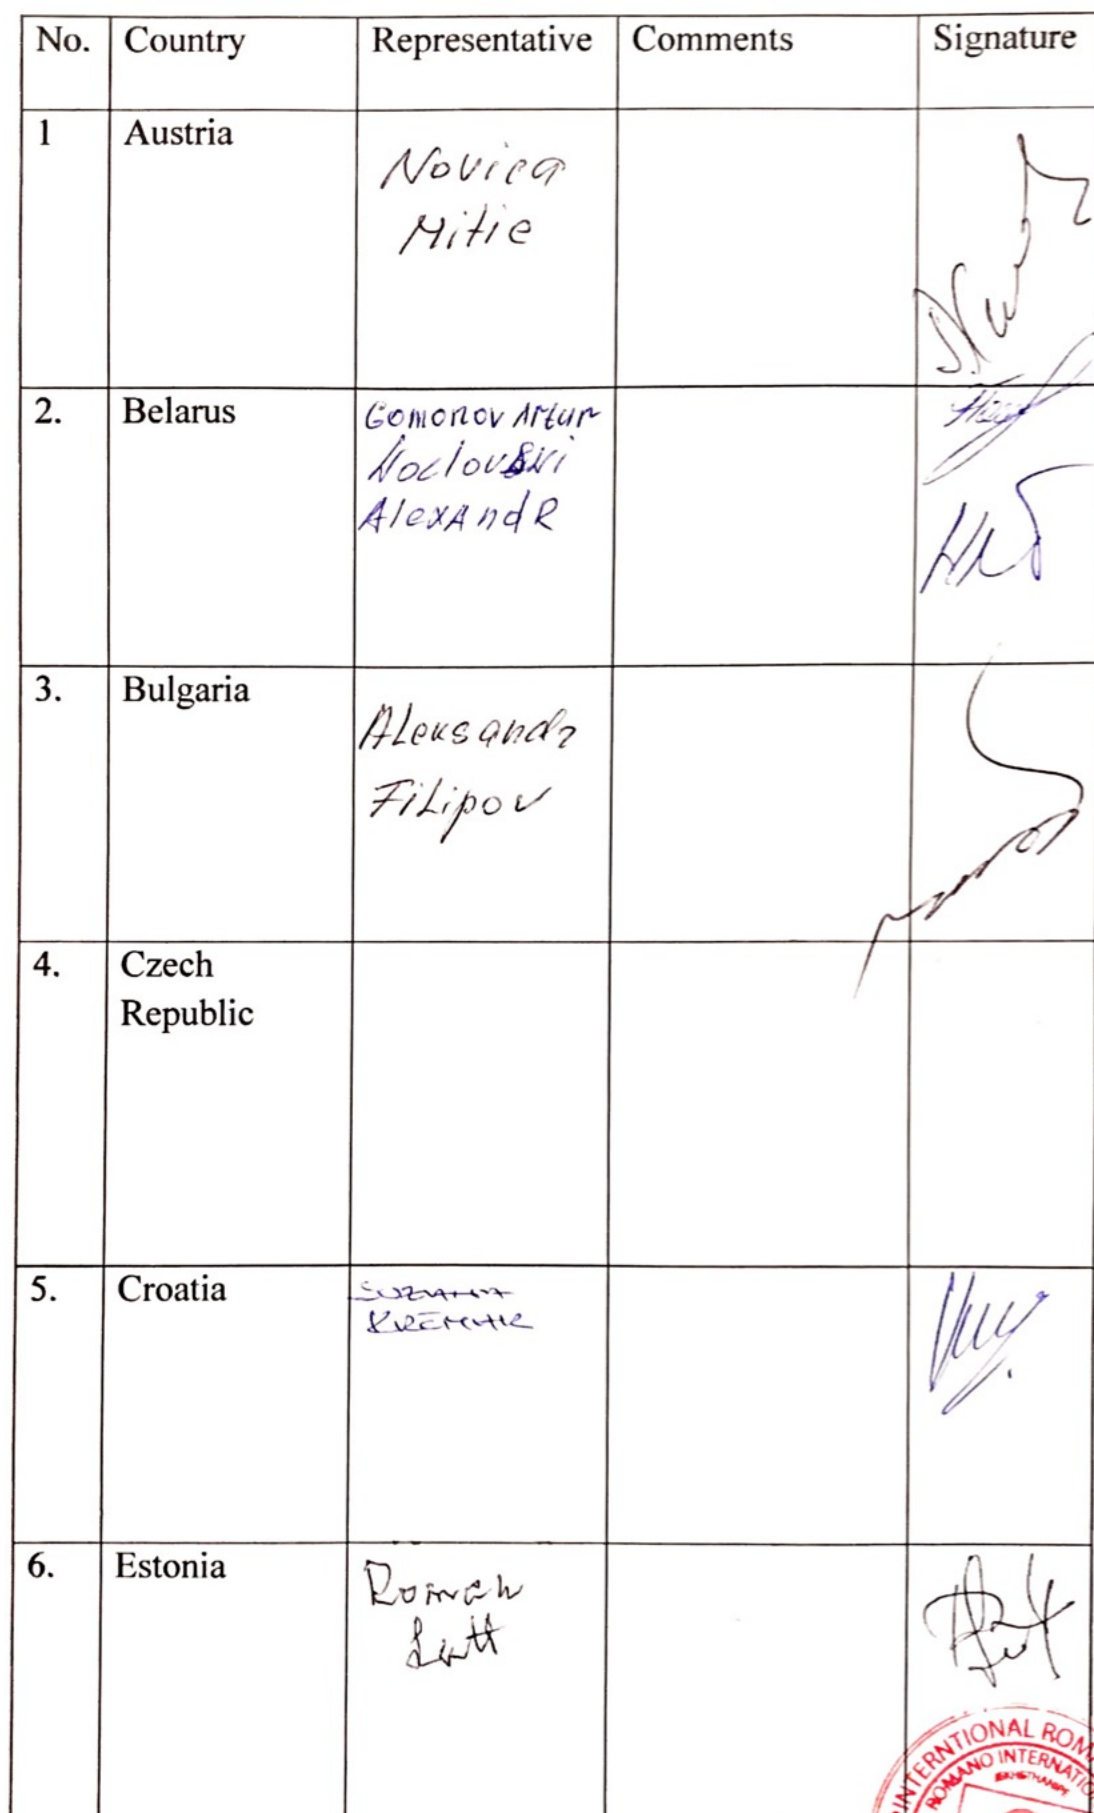 No. Country Representative Comments Signature
1 Austria
Novica
Mitie
2. Belarus
Gomonov Artur
AlexAndR
3. Bulgaria
ALeksandr
FiLipov
4. Czech
Republic
5. Croatia
SUZANA
KREMAR
6. Estonia
Roman
Lutt
INTERNTIONAL ROMA
ROMANO INTERNATIO